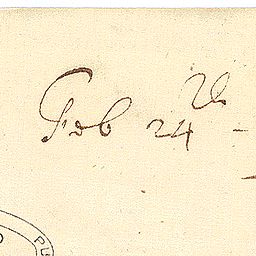 Feb 24th -
PU